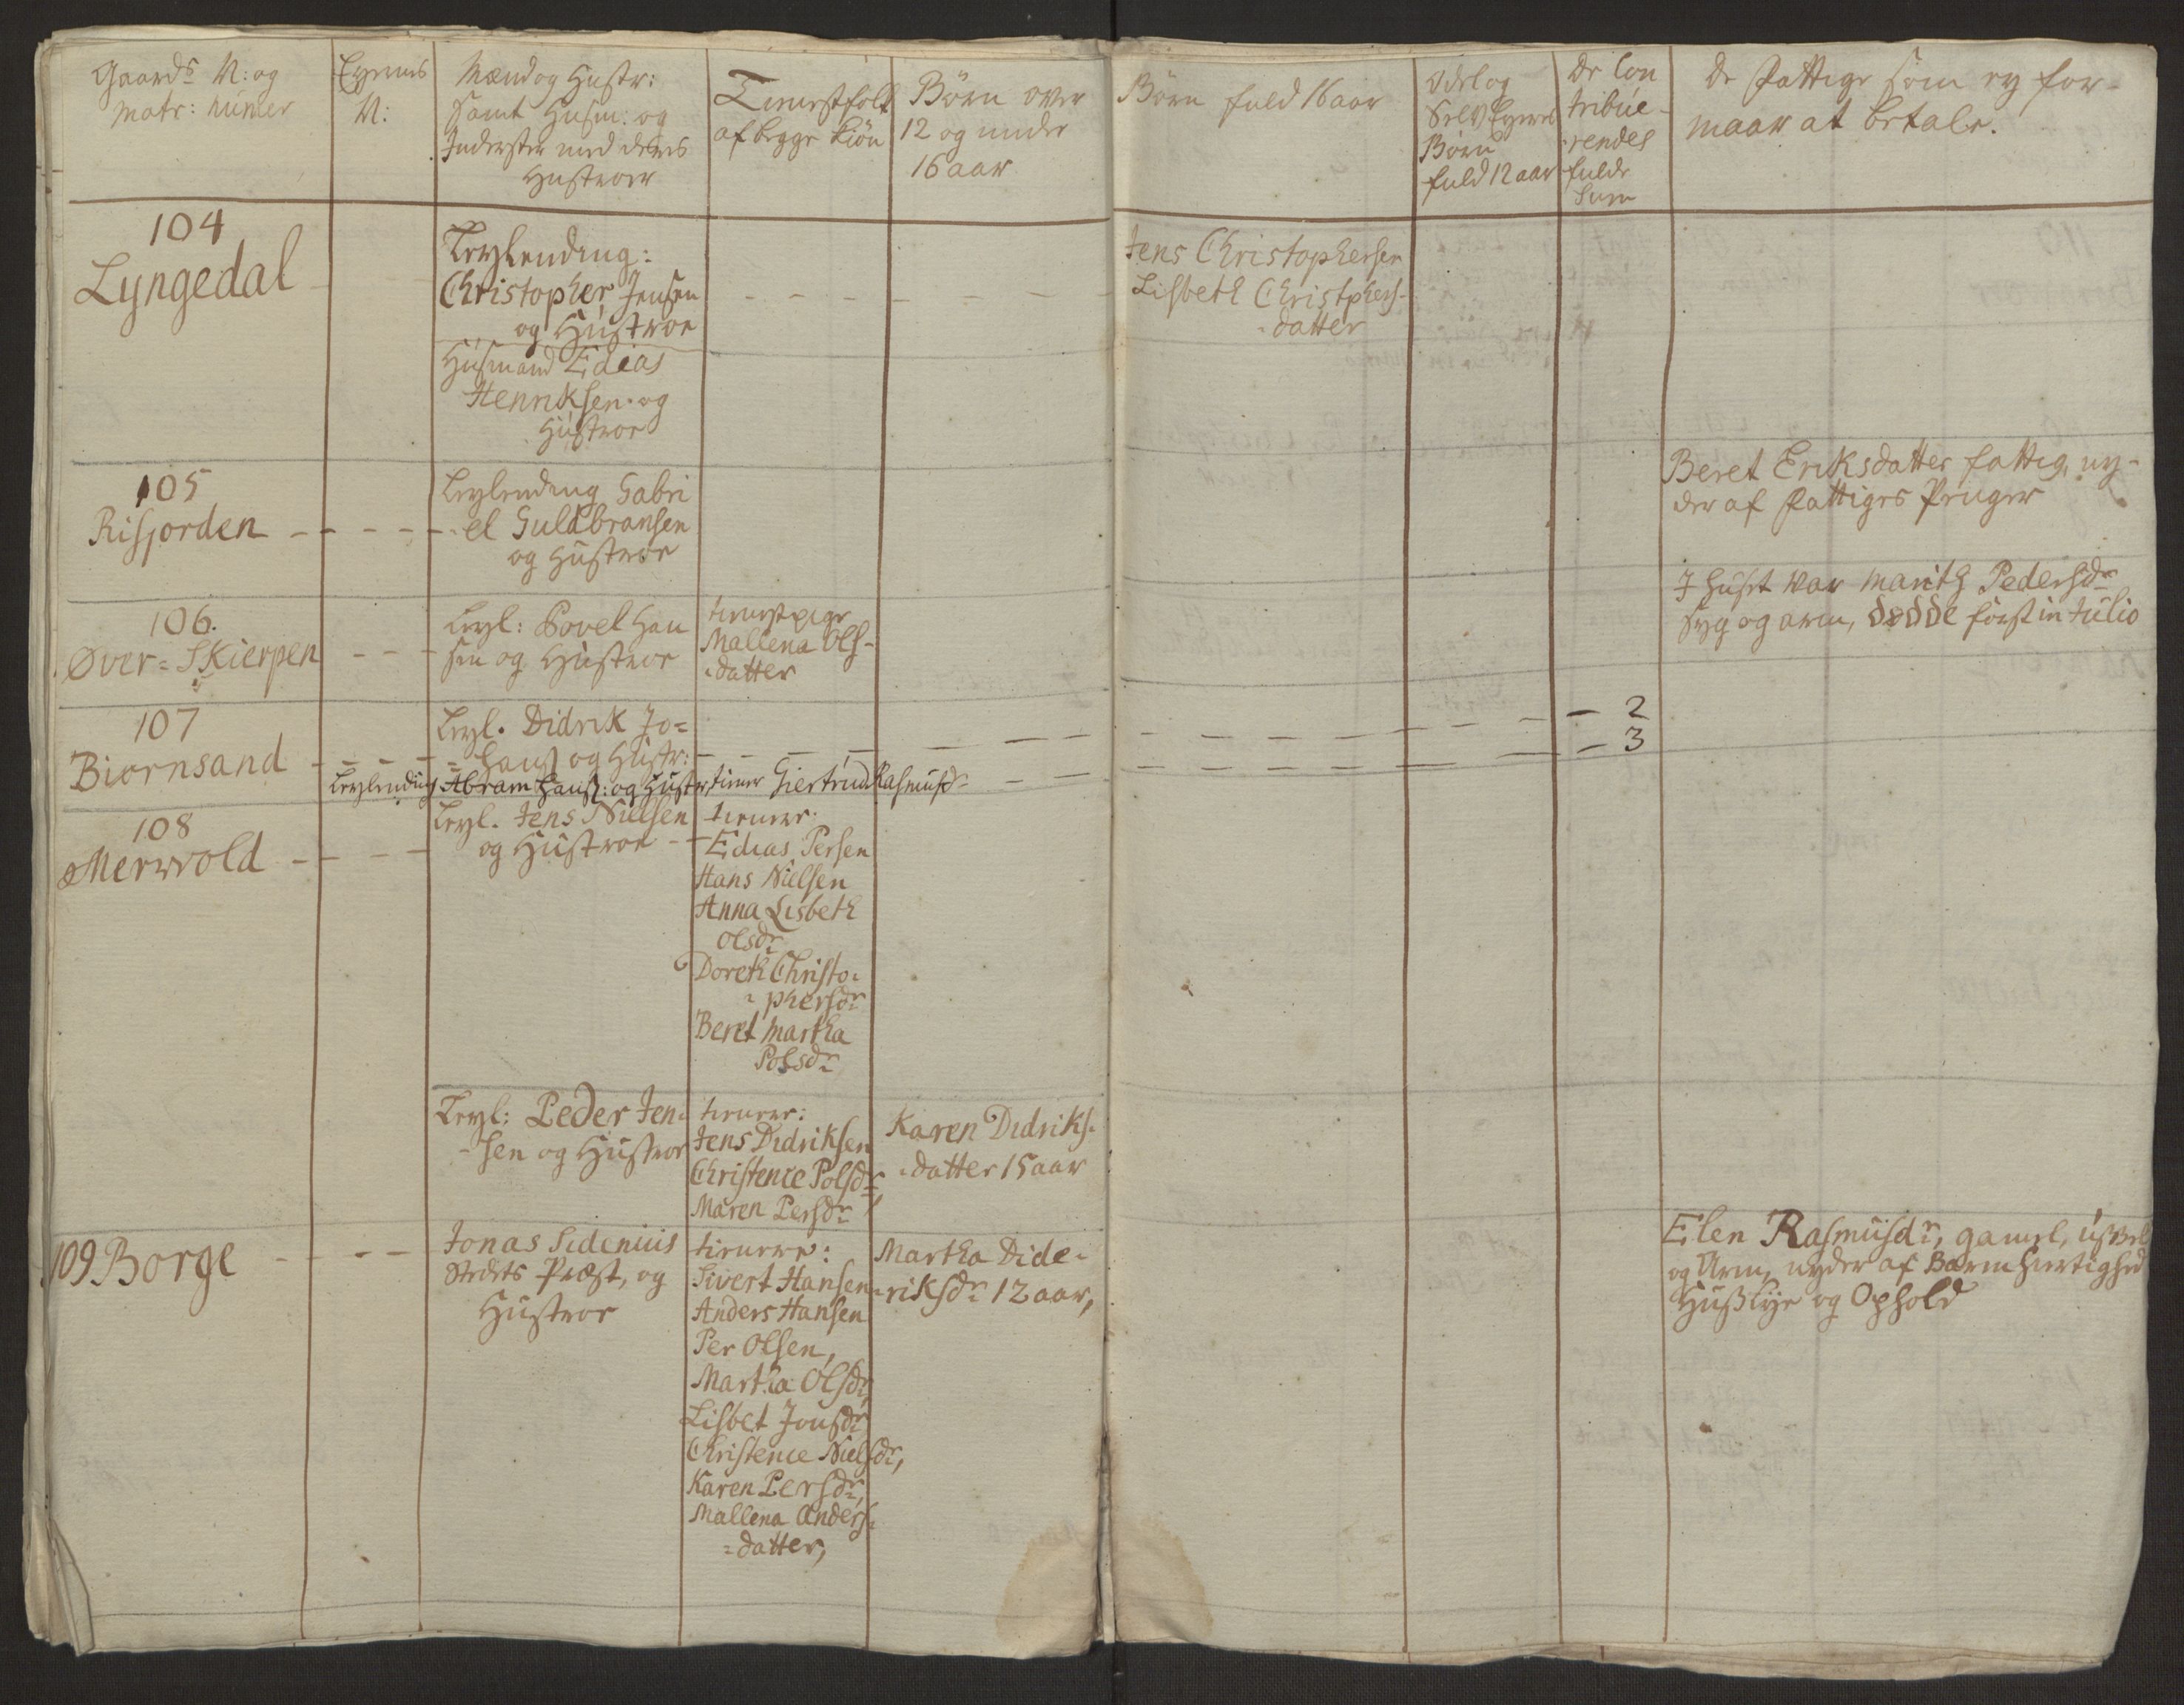 Gaards N: og
Matr: Numer
Eyernes
N:
Mænd og Hustr:
samt Husm: og
Inderster med deres
Hustroer
Tienestfolk
af begge kiön
Börn over
12 og under
16 aar
Börn fuld 16 aar
Odel og
Selv Eyeres
Börn
fuld 12 aar
De Con
tribue-
rendes
fulde
Sum
De Fattige som ey for-
maar at betale.
104
Lyngedal
Leylending:
Christopher Jensen
og Hustroe
Husmand Edias
Henriksen og
Hustroe
Jens Christophersen
Lisbeth Christphers-
datter
105
Risjorden
Leylending Gabri
el Guldbransen
og Hustroe
Beret Eriksdatter fattig, ny-
der af Fattiges Penger
106.
Över-Skierpen
Leyl: Povel Han
sen og Hustroe
tienestpige
Mallena Ols-
datter
I huset var Marith Pedersdr
syg og arm, dødde först in Julio
107
Biornsand
Leyl. Didrik Jo=
hans og Hustr:
2
Leylending Abram Hans: og Hustr, tiener Giertrud Rasmusdr
3
108
Merwold
Leyl. Jens Nielsen
og Hustroe
tienere:
Edias Persen
Hans Nielsen
Anna Lisbeth
Olsdr
Doreth Christo-
phersdr
Beret Martha
Polsdr
Leyl: Peder Jen-
sen og Hustroe
tienere:
Jens Didriksen
Christence Polsdr,
Maren Persdr
Karen Didriks-
datter 15 aar
109 Borge
Jonas Sidenius
Stedets Præst, og
Hustroe
tienere:
Sivert Hansen
Anders Hansen
Per Olsen,
Martha Olsdr,
Lisbet Jonsdr
Christence Nielsdr,
Karen Persdr,
Mallena Anders-
datter,
Martha Dide-
riksdr 12 aar,
Elen Rasmusdr, gamel, ussel
og Arm, nyder af Barmhiertighed
Huslye og Ophold